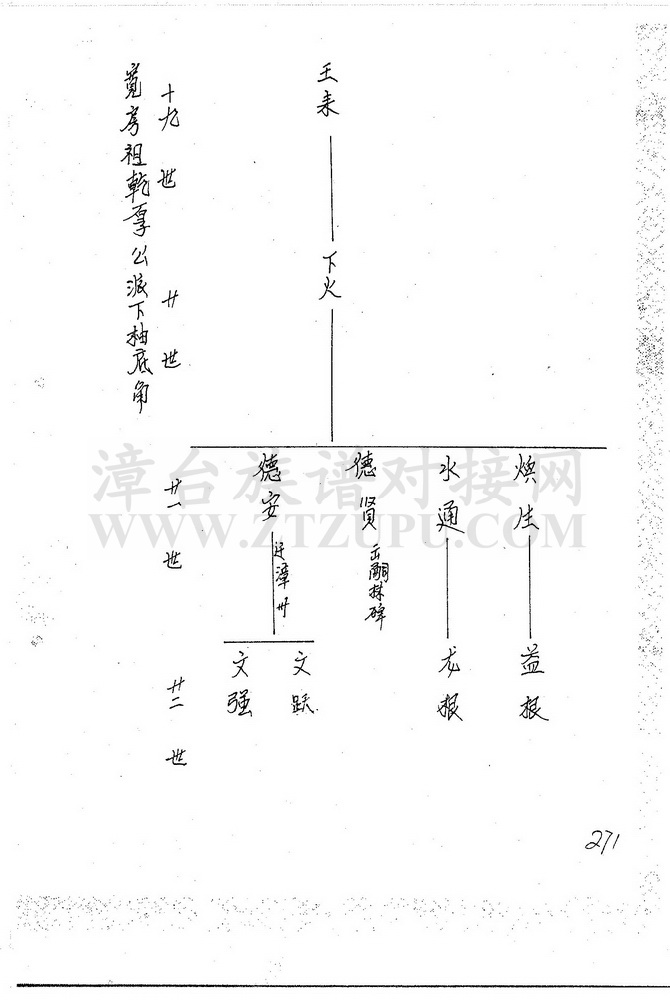 寬房祖乾亨公派下柚底角
十九世
廿世
廿一世
廿二世
下火
焕生
水通
德贤
德安
迁漳州
出嗣
益根
龙根
文跃
文强
漳台族谱对接网
WWW.ZTZUPU.COM
271